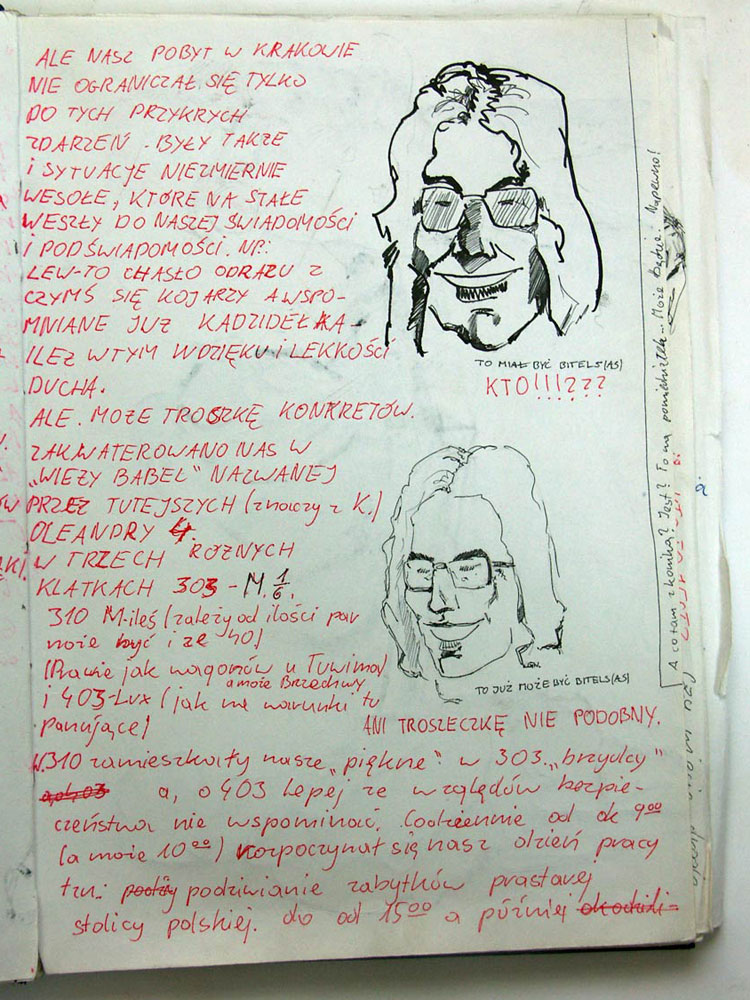 ALE NASZ POBYT W KRAKOWIE
NIE OGRANICZAŁ SIĘ TYLKO
DO TYCH PRZYKRYCH
ZDARZEŃ. BYŁY TAKŻE
I SYTUACJE NIEZMIERNIE
WESOŁE, KTÓRE NA STAŁE
WESZŁY DO NASZEJ ŚWIADOMOŚCI
I PODŚWIADOMOŚCI. NP.:
LEW-TO CHASŁO ODRAZU Z
CZYMŚ SIĘ KOJARZY A WSPO-
MNIANE JUŻ KADZIDEŁKA-
ILEŻ W TYM WDZIĘKU I LEKKOŚCI
DUCHA.
ALE. MOŻE TROSZKĘ KONKRETÓW.
ZAKWATEROWANO NAS W
„WIEŻY BABEL" NAZWANEJ
PRZEZ TUTEJSZYCH (znaczy z K.)
OLEANDRY 4.
W TRZECH RÓŻNYCH
KLATKACH 303 - M. 1/6.
310 M-ileś (zależy od ilości par
może być i ze 40.)
(Prawie jak wagonów u Tuwima)
a może Brzechwy
i 403-Lux (jak na warunki tu
panujące)
W.310 zamieszkały nasze „piękne" w 303 „brzydcy"
a, o 403 lepej ze względów bezpie-
czeństwa nie wspominać. Codziennie od ok 9.00
(a może 10.00) rozpoczynał się nasz dzień pracy
tzn: podziwianie zabytków prastarej
stolicy polskiej. do od 15.00 a później
TO MIAŁ BYĆ BITELS (AS)
KTO!!!???
TO JUŻ MOŻE BYĆ BITELS (AS)
ANI TROSZECZKĘ NIE PODOBNY.
A co tam z komiką? Jest? To mą Może będzie. Napewno!